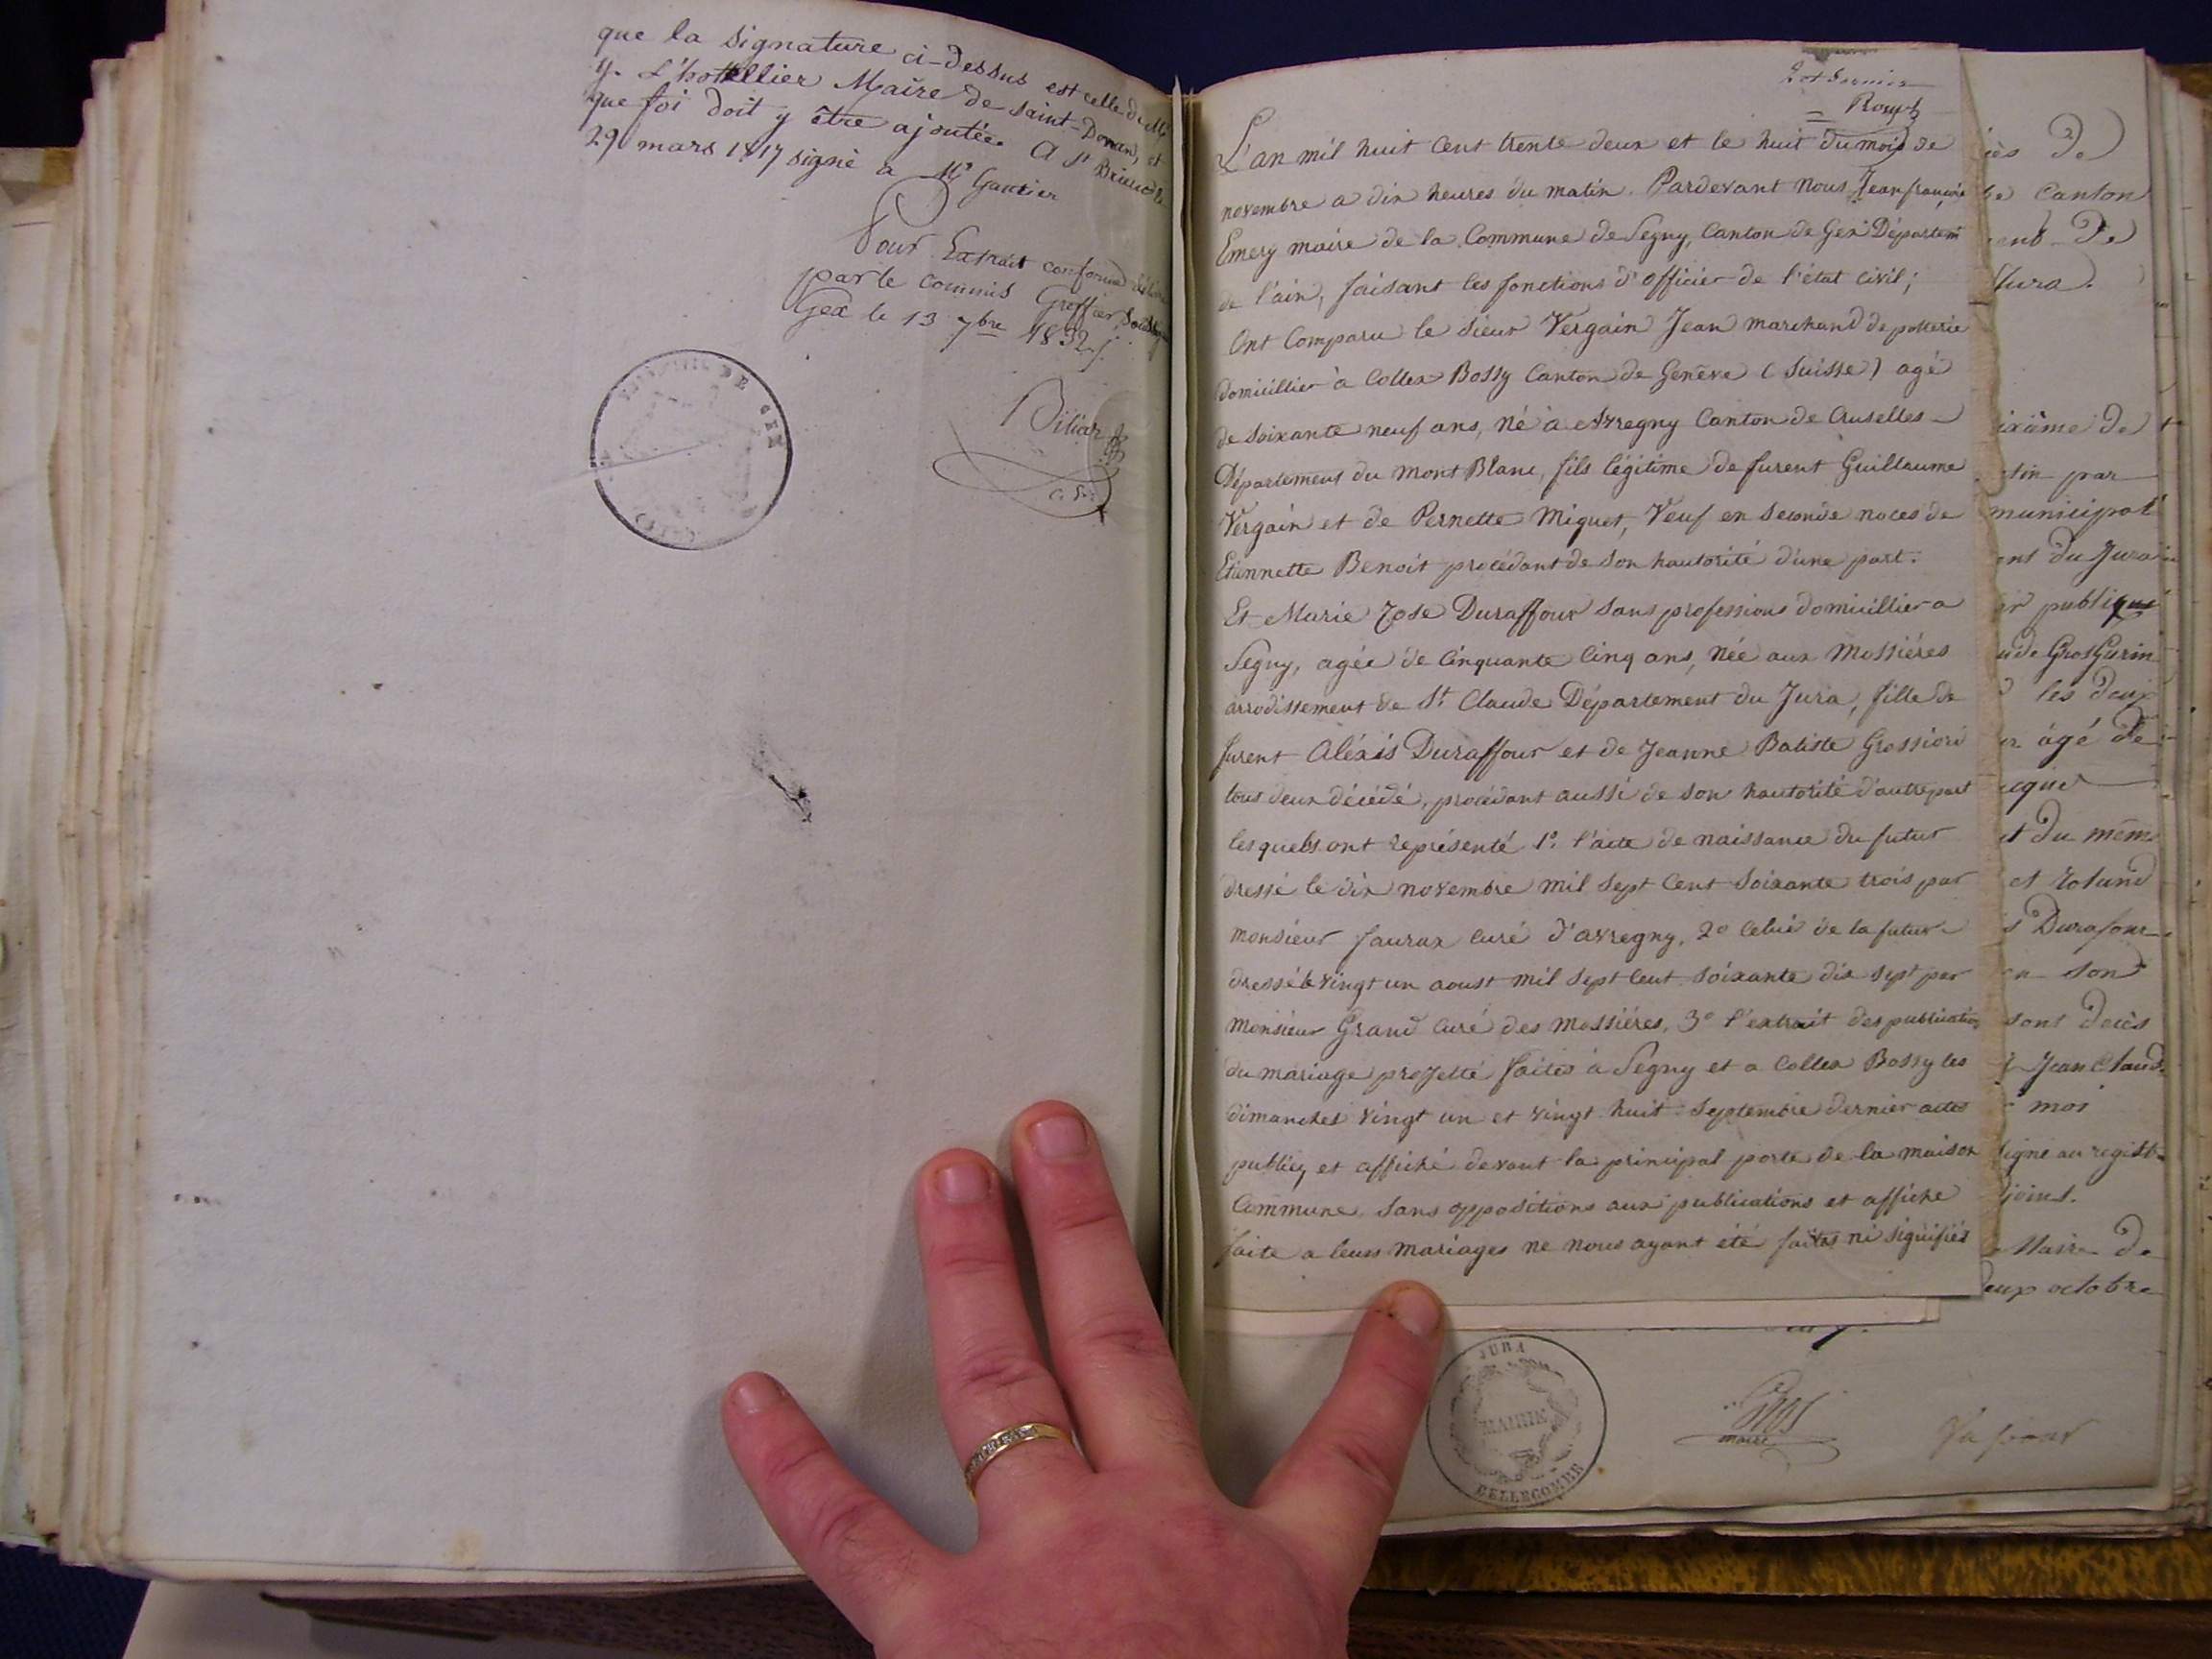 que la signature ci-dessus est celle de Mr
y. L'hotellier Maire de Saint-Donan, et
que foi doit y être ajoutée. A St Brieuc le
29 mars 1817 signé a Mr Gautier
Pour Extrait conforme
par le commis Greffier
Gex le 13 7bre 1832
DE GEX
L'an mil huit cent trente deux et le huit du mois de
novembre a dix heures du matin. Pardevant Nous Jean françois
Emery maire de la Commune de Segny, Canton de Gex Départemt
de l'ain, faisant les fonctions d'officier de l'état civil;
Ont Comparu le sieur Vergain Jean marchand de potterie
domicillier à Collex Bossy Canton de Genève (Suisse) agé
de soixante neuf ans, né à Avregny Canton de Cruselles
Département du Mont Blanc, fils légitime de furent Guillaume
Vergain et de Pernette Miquet, Veuf en seconde noces de
Etiennette Benoit procédant de son hautorité d'une part.
Et Marie Rose Duraffour sans professions domicillier a
Segny, agée de Cinquante Cinq ans, Née aux Mossiéres
arrodissement de St Claude Département du Jura, fille de
furent Aléxis Duraffour et de Jeanne Batiste Grossiord
tous deux décédé, procédant aussi de son hautorité d'autre part
lesquels ont représenté 1o l'acte de naissance du futur
dressé le dix novembre mil sept Cent soixante trois par
monsieur Curé d'avregny, 2o Celui de la future
dressé le vingt un aoust mil sept Cent soixante dix sept par
monsieur Grand Curé des mossiéres, 3o l'extrait des publications
du mariage projetté faites à Segny et a Collex Bossy les
dimanches vingt un et vingt huit septembre dernier actes
publiez et affiché devant la principal porte de la maison
Commune sans oppositions aux publications et affiche
faite a leurs mariages ne nous ayant été faites ni signifiés
de
Canton
De
Jura.
de
par
municipal
du Jura
publique
GrosGurin
les deux
agé de
du même
et rolund
Durafour
son
sont
Jean Claude
moi
signé au registre
joint.
Maire de
octobre
JURA
MAIRIE
BELLECOMBE
Gros
maire